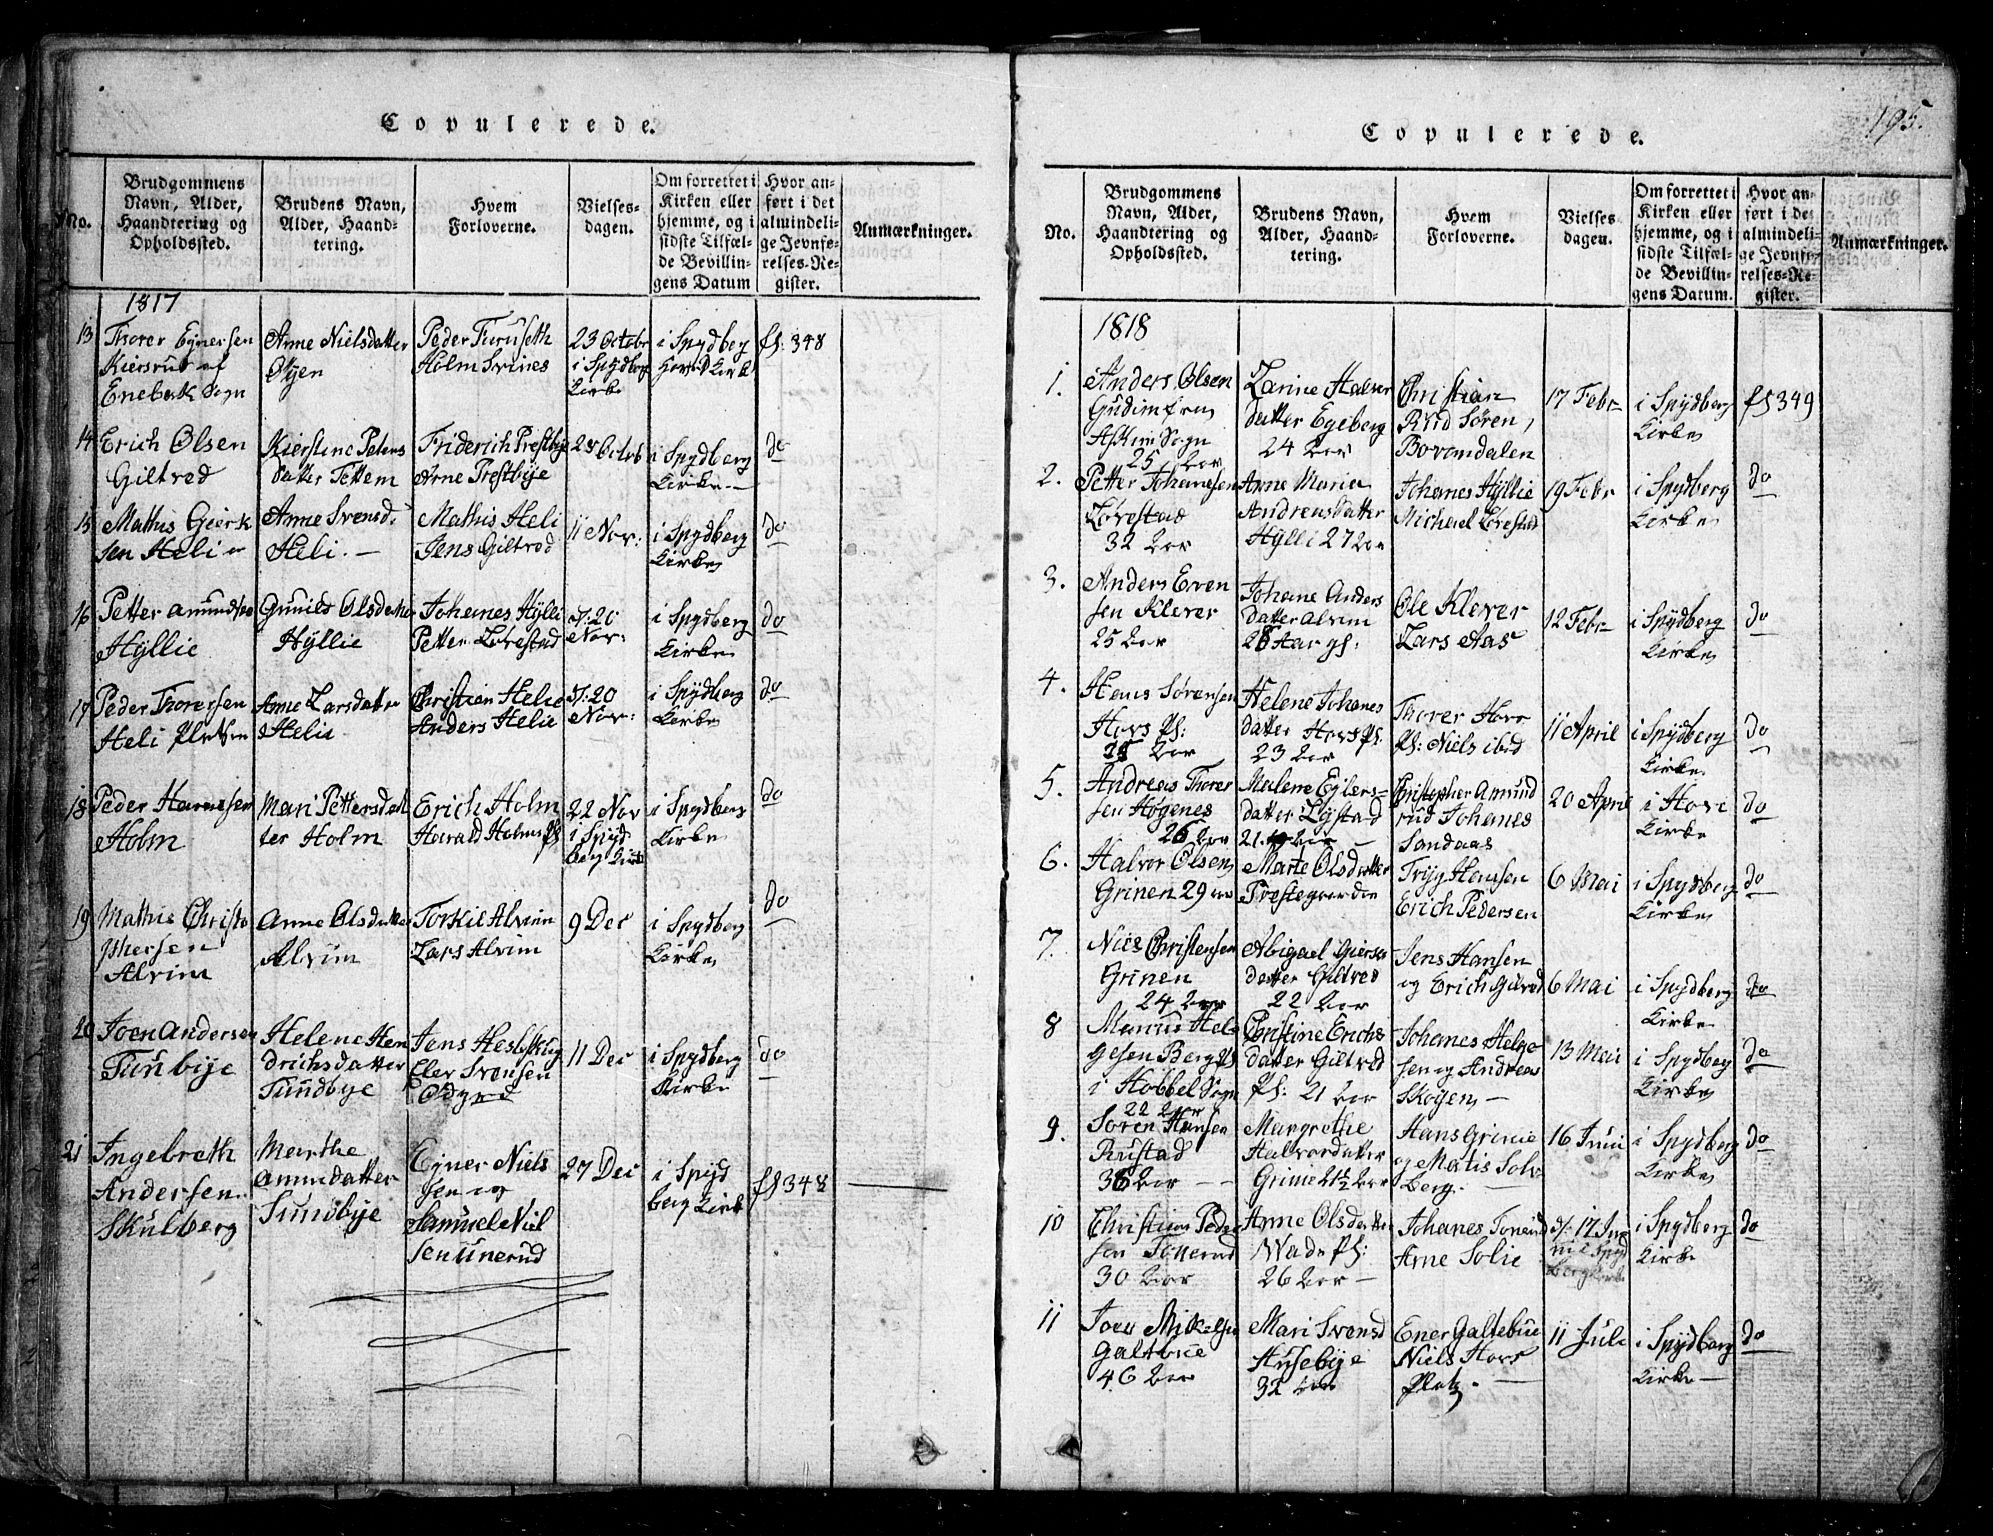 Copulerede.
No.
Brudgommens
Navn, Alder,
Haandtering og
Opholdssted.
Brudens Navn,
Alder, Haand-
tering.
Hvem
Forloverne.
Vielses-
dagen.
Om forrettet i
Kirken eller
hjemme, og i
sidste Tilfæl-
de Bevillin-
gens Datum
Hvor an-
ført i det
almindeli-
ge Jevnfø-
relses-Re-
gister.
Anmærkninger.
1817
13
Thorer Ejnersen
Kiersrud af
Enebak Sogn
Anne Nielsdatter
Øÿen
Peder Furuseth
Holm Svines
23 Octobr
i Spydberg
Kirke
i Spydberg
Hoved Kirk
fs: 348
14
Erich Olsen
Giltved
Kierstine Peters
datter Tettem
Friderich Prestbye
Arne Prestbÿe
28 Octob
i Spydberg
Kirke
do
15
Mathis Gierk
sen Heli
Anne Svensd:
Heli. —
Mathis Heli
Jens Giltvod
11 Nov:
i Spydberg
Kirke
do
16
Petter Amundsen
Hÿllie
Gunild Olsdatter
Hÿllie
Johanes Hÿlli
Petter Lørestad
d: 20
Nov:
i Spydberg
Kirke
do
17
Peder Thorersen
Heli
Anne Larsdatter
Helie
Christian Helie
Anders Helie
d: 20
Nov:
i Spÿdberg
Kirke
do
18
Peder Hansen
Holm
Mari Pettersdat
ter Holm
Erich Holm
Harald Holms Pl
22 Nov
i Spyd
berg Kirk
i Spydberg
Kirke
do
19
Mathis Christo
phersen
Alvim
Anne Olsdatter
Alvim
Torkil Alvim
Lars Alvim
9 Dec
i Spydberg
Kirke
do
20
Joen Andersen
Tunbÿe
Helene Hen
drichsdatter
Tundbÿe
Jens
Elev Svensen
11 Dec
i Spydberg
Kirke
do
21
Ingebreth
Andersen
Skulberg
Marthe
Amundatter
Sundbÿe
Ejner Niels
sen og
Samuel Niel
sen Unerud
27 Dec
i Spÿd
berg Kirk
fs 348
Copulerede.
195.
No.
Brudgommens
Navn, Alder,
Haandtering og
Opholdssted.
Brudens Navn,
Alder, Haand-
tering.
Hvem
Forloverne.
Vielses-
dagen.
Om forrettet i
Kirken eller
hjemme, og i
sidste Tilfæl-
de Bevillin-
gens Datum.
Hvor an-
ført i det
almindeli-
ge Jevnfø-
relses-Re-
gister.
Anmærkninger.
1818
1.
Anders Olsen
Gudim fra
Askim Sogn
25 Aar
Karine Halvor
datter Egeberg
24 Aar
Christian
Rud Søren,
Bovomdalen
17 Febr
i Spÿdberg
Kirke
fs 349
2.
Petter Johanesen
Lørestad
32 Aar
Anne Maria
Andreasdatter
Hÿlli 27 Aar
Johanes Hÿllie
Michael Lørestad
19 Febr
i Spydberg
Kirke
do
3.
Anders Even
sen Klever
25 Aar
Johane Anders
datter Alvim
28 Aar gl:
Ole Klever
Lars Aas
12 Febr
i Spydberg
Kirke
do
4.
Hans Sørensen
Hovs Pl:
Aar
Helene Johanes
datter Hovs Pl:
23 Aar
Thorer Hovs
Pl: Niels ibid
11 April
i Spÿdberg
Kirke.
do
5.
Andreas Thorer
sen Høgenes
26 Aar
Malene Eglers-
datter Løÿstad
21 Aar
Christopher Amund
rud Johanes
Sandaas
20 April
i Hove
Kirke
do
6.
Halvor Olsen
Grinen 29 aar
Marte Olsdatter
Prestegaarden
Trÿg Hansen
Erich Pedersen
6 Mai
i Spydberg
Kirke
do
7.
Niels Christensen
Grinen
24 Aar
Abigael Giers
datter Giltved
22 Aar
Jens Hansen
og Erich Giltved
6 Mai
i Spydberg
Kirke
do
8
Marius Hel
gesen Berg Pl
i Hobbel Sogn
22 Aar
Christine Erichs
datter Giltved
Pl: 21 Aar
Johanes Helge
sen og Andreas
Skoÿen —
13 Mai
i Spydberg
Kirke
do
9.
Søren Hansen
Rustad
36 Aar
Margrethe
Halvordatter
Grinie 21½ Aar
Hans Grinie
og Matis Solv
berg.
16 Juni
i Spydberg
Kirke
do
10
Christian Peder
sen Tonerud
30 Aar
Anne Olsdatter
Wads Pl:
26 Aar —
Johanes Tonerud
Arne Solie
d: 17 Ju
ni i Spyd
berg Kirke
i Spydberg
Kirke
do
11
Joen Mikelsen
Galtbue
46 Aar
Mari Svensd
Husebÿe
32 Aar
Ener Galtebue
Niels Hovs
Platz.
11 Juli
i Spydberg
Kirke —
do